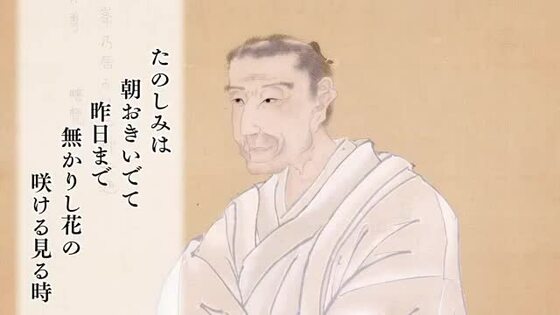 たのしみは
朝おきいでて
昨日まで
無かりし花の
咲ける見る時